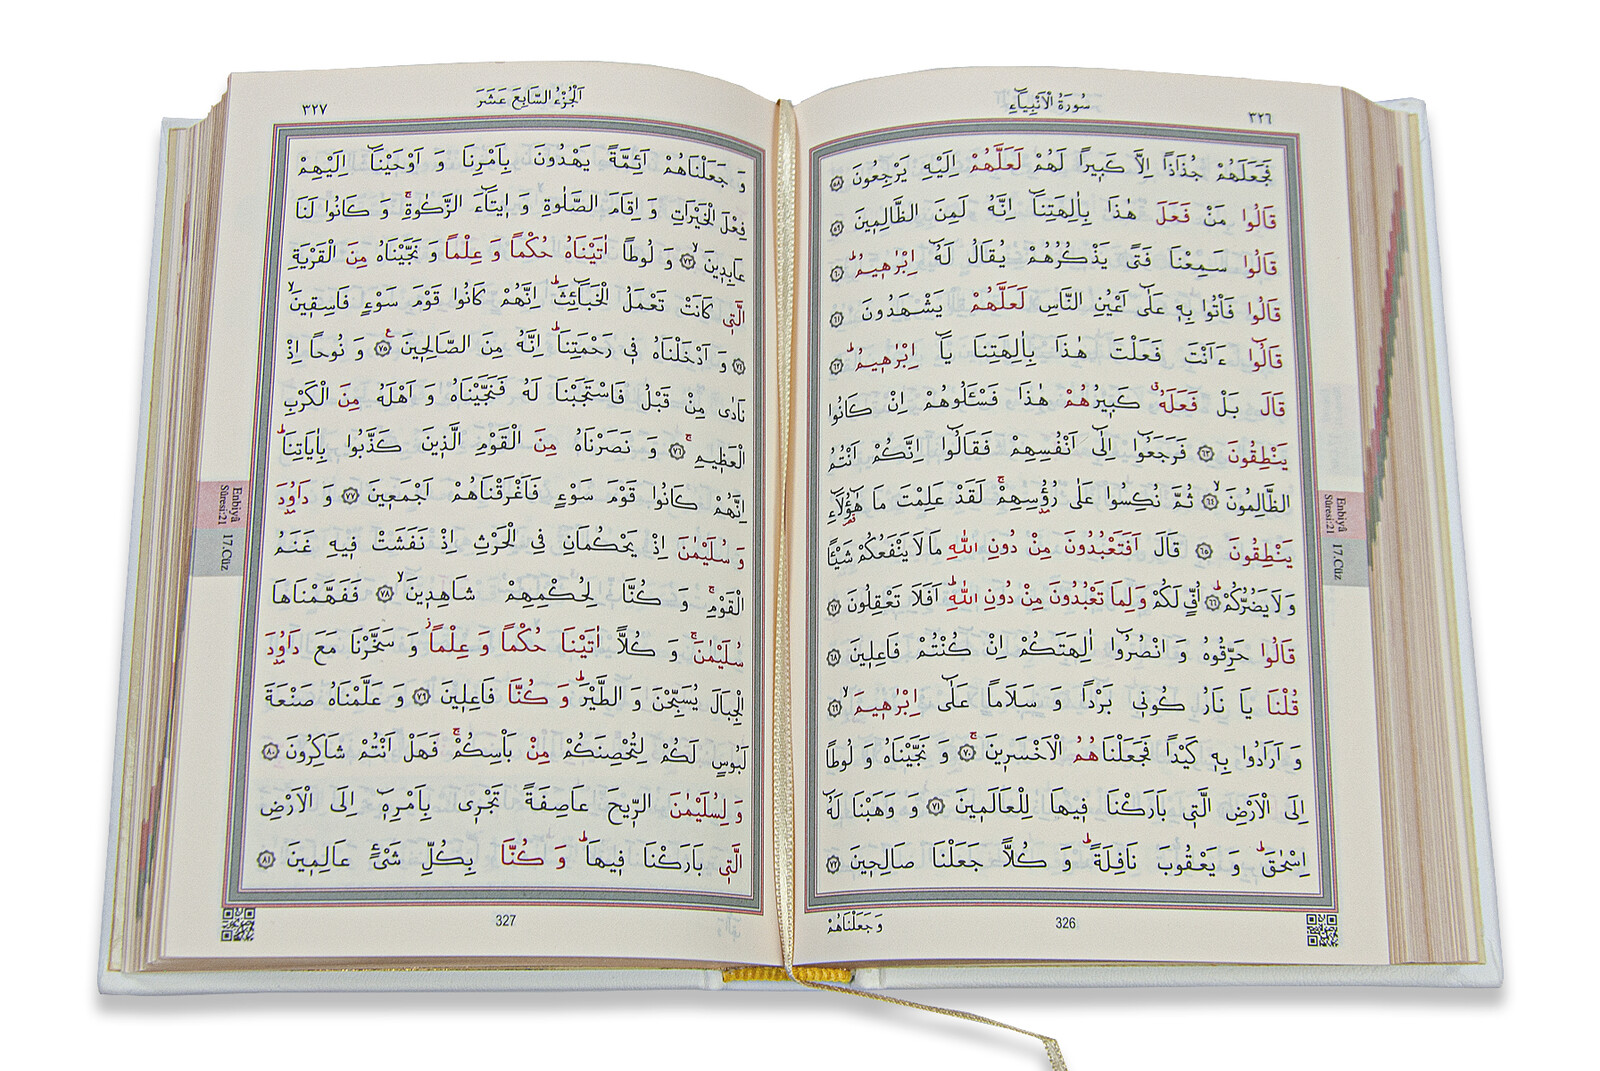 ٣٢٦
سُورَةُ الْاَنْبِيَاءِ
فَجَعَلَهُمْ جُذَاذًا اِلَّا كَبٖيرًا لَهُمْ لَعَلَّهُمْ اِلَيْهِ يَرْجِعُونَ ﴿٥٨﴾
قَالُوا مَنْ فَعَلَ هٰذَا بِاٰلِهَتِنَٓا اِنَّهُ لَمِنَ الظَّالِمٖينَ ﴿٥٩﴾
قَالُوا سَمِعْنَا فَتًى يَذْكُرُهُمْ يُقَالُ لَهُٓ اِبْرٰهٖيمُ ﴿٦٠﴾
قَالُوا فَأْتُوا بِهٖ عَلٰٓى اَعْيُنِ النَّاسِ لَعَلَّهُمْ يَشْهَدُونَ ﴿٦١﴾
قَالُٓوا ءَاَنْتَ فَعَلْتَ هٰذَا بِاٰلِهَتِنَا يَٓا اِبْرٰهٖيمُ ﴿٦٢﴾
قَالَ بَلْ فَعَلَهُ كَبٖيرُهُمْ هٰذَا فَسْـَٔلُوهُمْ اِنْ كَانُوا
يَنْطِقُونَ ﴿٦٣﴾ فَرَجَعُٓوا اِلٰٓى اَنْفُسِهِمْ فَقَالُٓوا اِنَّكُمْ اَنْتُمُ
الظَّالِمُونَ ﴿٦٤﴾ ثُمَّ نُكِسُوا عَلٰى رُؤُسِهِمْ لَقَدْ عَلِمْتَ مَا هٰٓؤُلَٓاءِ
يَنْطِقُونَ ﴿٦٥﴾ قَالَ اَفَتَعْبُدُونَ مِنْ دُونِ اللّٰهِ مَا لَا يَنْفَعُكُمْ شَيْـًٔا
وَ لَا يَضُرُّكُمْ ﴿٦٦﴾ اُفٍّ لَكُمْ وَ لِمَا تَعْبُدُونَ مِنْ دُونِ اللّٰهِ اَفَلَا تَعْقِلُونَ ﴿٦٧﴾
قَالُوا حَرِّقُوهُ وَ انْصُرُٓوا اٰلِهَتَكُمْ اِنْ كُنْتُمْ فَاعِلٖينَ ﴿٦٨﴾
قُلْنَا يَا نَارُ كُونٖى بَرْدًا وَ سَلَامًا عَلٰٓى اِبْرٰهٖيمَ ﴿٦٩﴾
وَ اَرَادُوا بِهٖ كَيْدًا فَجَعَلْنَاهُمُ الْاَخْسَرٖينَ ﴿٧٠﴾ وَ نَجَّيْنَاهُ وَ لُوطًا
اِلَى الْاَرْضِ الَّتٖى بَارَكْنَا فٖيهَا لِلْعَالَمٖينَ ﴿٧١﴾ وَ وَهَبْنَا لَهُٓ
اِسْحٰقَ وَ يَعْقُوبَ نَافِلَةً وَ كُلًّا جَعَلْنَا صَالِحٖينَ ﴿٧٢﴾
وَ جَعَلْنَاهُمْ
326
Enbiyâ
Sûresi:21
17.Cüz
٣٢٧
اَلْجُزْءُ السَّابِعَ عَشَرَ
وَ جَعَلْنَاهُمْ اَئِمَّةً يَهْدُونَ بِاَمْرِنَا وَ اَوْحَيْنَٓا اِلَيْهِمْ
فِعْلَ الْخَيْرَاتِ وَ اِقَامَ الصَّلٰوةِ وَ اٖيتَٓاءَ الزَّكٰوةِ وَ كَانُوا لَنَا
عَابِدٖينَ ﴿٧٣﴾ وَ لُوطًا اٰتَيْنَاهُ حُكْمًا وَ عِلْمًا وَ نَجَّيْنَاهُ مِنَ الْقَرْيَةِ
الَّتٖى كَانَتْ تَعْمَلُ الْخَبَٓائِثَ اِنَّهُمْ كَانُوا قَوْمَ سَوْءٍ فَاسِقٖينَ
﴿٧٤﴾ وَ اَدْخَلْنَاهُ فٖى رَحْمَتِنَا اِنَّهُ مِنَ الصَّالِحٖينَ ﴿٧٥﴾ وَ نُوحًا اِذْ
نَادٰى مِنْ قَبْلُ فَاسْتَجَبْنَا لَهُ فَنَجَّيْنَاهُ وَ اَهْلَهُ مِنَ الْكَرْبِ
الْعَظٖيمِ ﴿٧٦﴾ وَ نَصَرْنَاهُ مِنَ الْقَوْمِ الَّذٖينَ كَذَّبُوا بِاٰيَاتِنَا
اِنَّهُمْ كَانُوا قَوْمَ سَوْءٍ فَاَغْرَقْنَاهُمْ اَجْمَعٖينَ ﴿٧٧﴾ وَ دَاوُدَ
وَ سُلَيْمٰنَ اِذْ يَحْكُمَانِ فِى الْحَرْثِ اِذْ نَفَشَتْ فٖيهِ غَنَمُ
الْقَوْمِ وَ كُنَّا لِحُكْمِهِمْ شَاهِدٖينَ ﴿٧٨﴾ فَفَهَّمْنَاهَا
سُلَيْمٰنَ وَ كُلًّا اٰتَيْنَا حُكْمًا وَ عِلْمًا وَ سَخَّرْنَا مَعَ دَاوُدَ
الْجِبَالَ يُسَبِّحْنَ وَ الطَّيْرَ وَ كُنَّا فَاعِلٖينَ ﴿٧٩﴾ وَ عَلَّمْنَاهُ صَنْعَةَ
لَبُوسٍ لَكُمْ لِتُحْصِنَكُمْ مِنْ بَاْسِكُمْ فَهَلْ اَنْتُمْ شَاكِرُونَ ﴿٨٠﴾
وَ لِسُلَيْمٰنَ الرّٖيحَ عَاصِفَةً تَجْرٖى بِاَمْرِهٖٓ اِلَى الْاَرْضِ
الَّتٖى بَارَكْنَا فٖيهَا وَ كُنَّا بِكُلِّ شَىْءٍ عَالِمٖينَ ﴿٨١﴾
327
Enbiyâ
Sûresi:21
17.Cüz